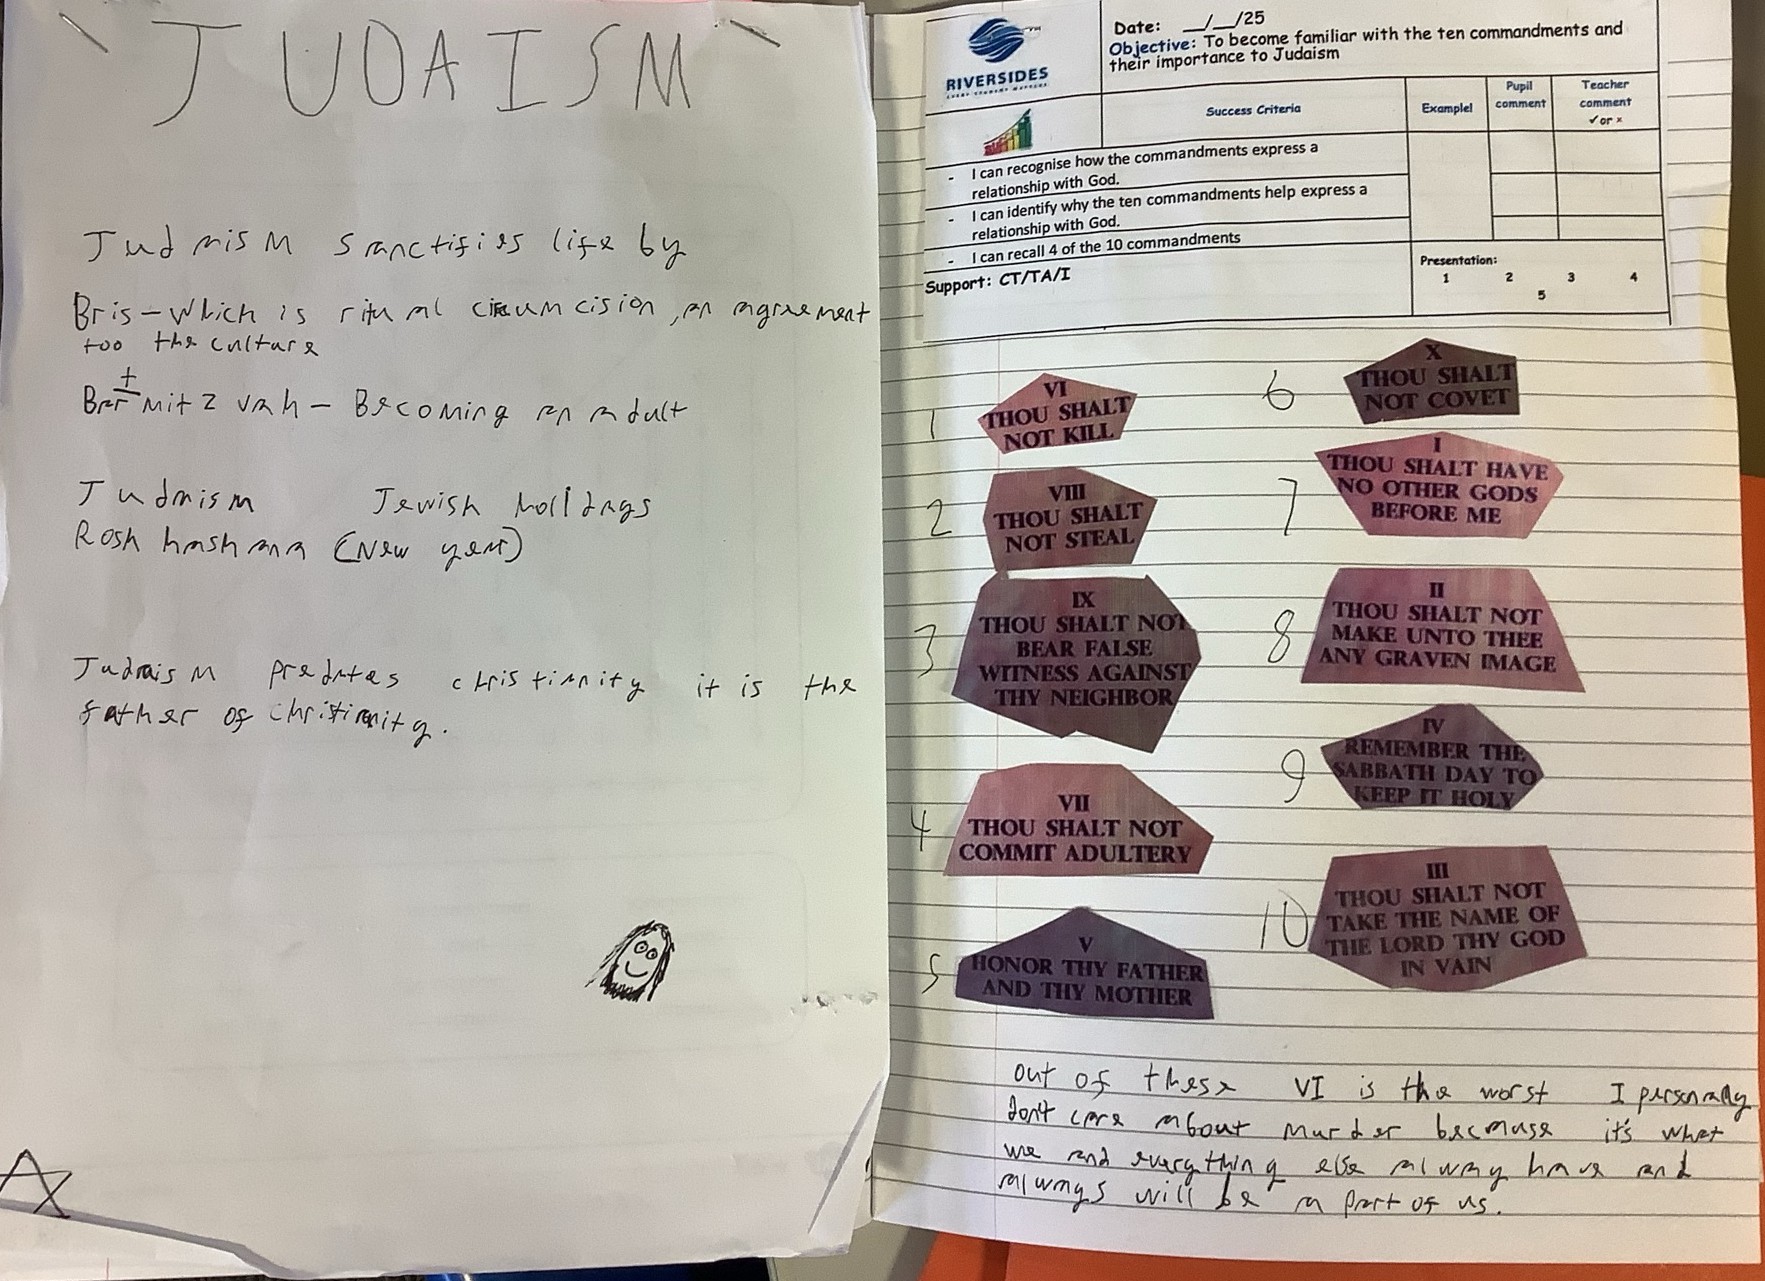 JUDAISM
Judaism sanctifies life by
Bris - which is ritual circumcision, an agreement
too the culture
Bar + mitzvah - Becoming an adult
Judaism Jewish holidays
Rosh hashana (New year)
Judaism predates christianity it is the
father of christianity.
RIVERSIDES
Date: __/__/25
Objective: To become familiar with the ten commandments and
their importance to Judaism
Success Criteria
Example!
Pupil
comment
Teacher
comment
✓ or x
- I can recognise how the commandments express a
relationship with God.
- I can identify why the ten commandments help express a
relationship with God.
- I can recall 4 of the 10 commandments
Support: CT/TA/I
Presentation:
1 2 3 4
5
1
VI
THOU SHALT
NOT KILL
2
VIII
THOU SHALT
NOT STEAL
3
IX
THOU SHALT NOT
BEAR FALSE
WITNESS AGAINST
THY NEIGHBOR
4
VII
THOU SHALT NOT
COMMIT ADULTERY
5
V
HONOR THY FATHER
AND THY MOTHER
6
X
THOU SHALT
NOT COVET
7
I
THOU SHALT HAVE
NO OTHER GODS
BEFORE ME
8
II
THOU SHALT NOT
MAKE UNTO THEE
ANY GRAVEN IMAGE
9
IV
REMEMBER THE
SABBATH DAY TO
KEEP IT HOLY
10
III
THOU SHALT NOT
TAKE THE NAME OF
THE LORD THY GOD
IN VAIN
out of these VI is the worst I personally
don't care about murder because it's what
we and everything else alway have and
always will be a part of us.